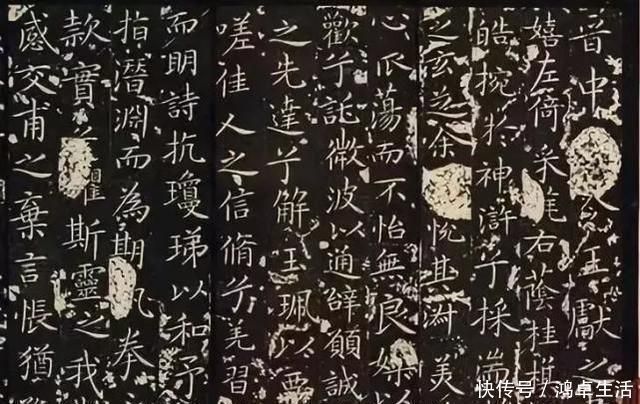 晉中令王獻之
嬉左倚采旄右蔭桂旗
皓捥於神滸兮採湍
之玄芝余悅其淑美
心爪蕩而不怡無良媒以
歡兮託微波以通辭願誠
之先達兮解玉珮以要
嗟佳人之信脩兮羌習
而明詩抗瓊珶以和予
指潛淵而為期執奉
款實懼斯靈之我
感交甫之棄言悵猶
快传号/鸿卓生活